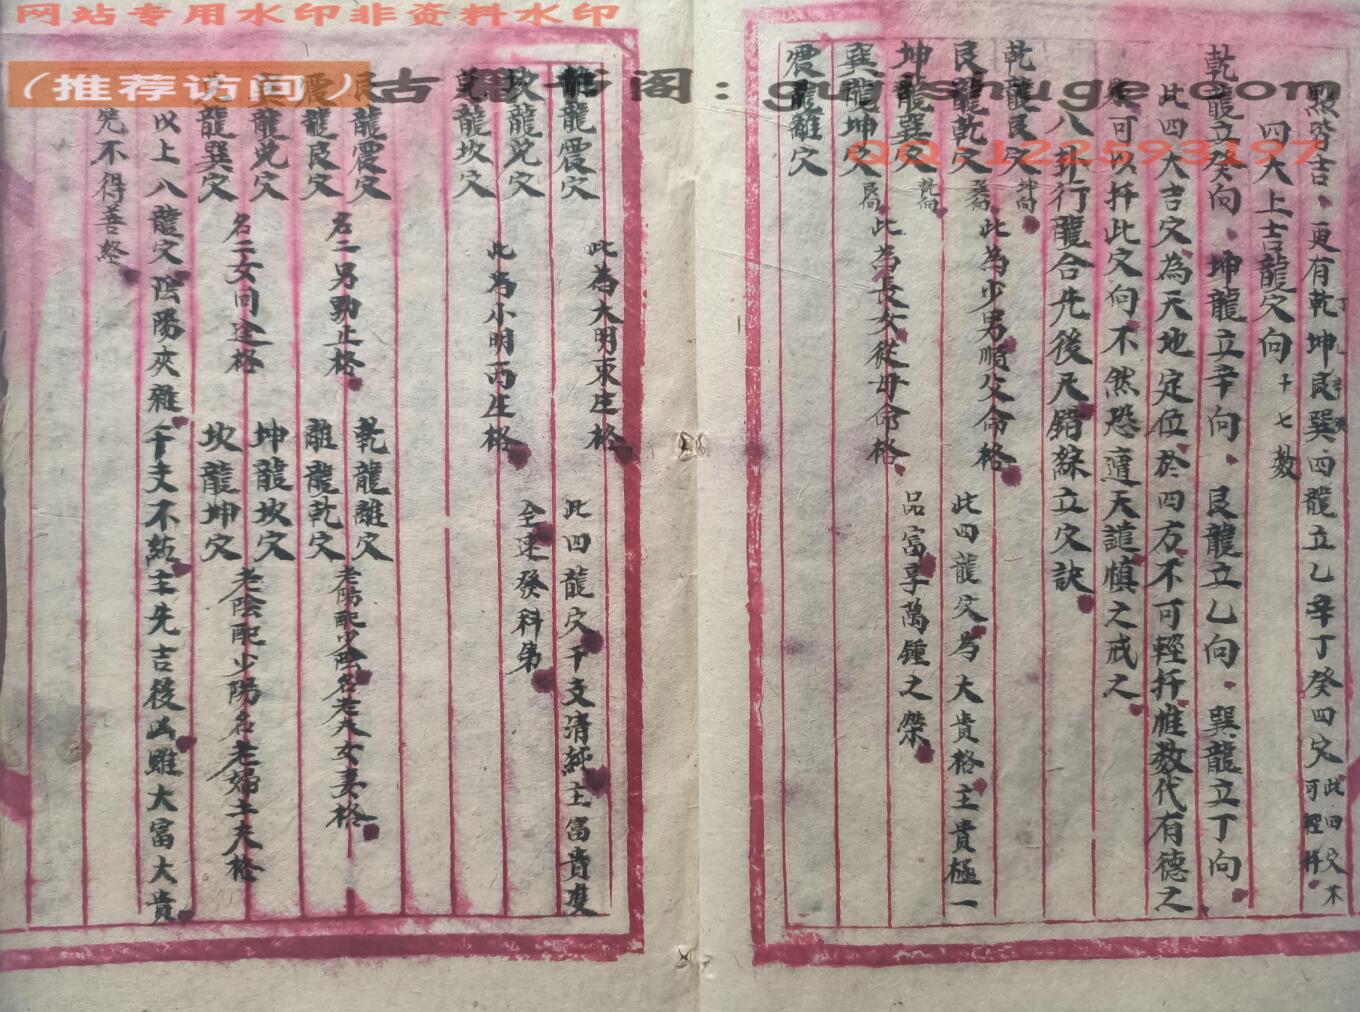 网站专用水印非资料水印
(推荐访问)古籍书阁:gujishuge.com
QQ:122593197
照皆吉、更有乾坤艮巽四龍立乙辛丁癸四穴此四穴不可輕扦
四大上吉龍穴向
乾龍立癸向、坤龍立辛向、艮龍立乙向、巽龍立丁向
此四大吉穴為天地定位於四方不可輕扦惟數代有德之
可以扦此穴向不然恐遭天譴慎之戒之
八卦行龍合先後天錯綜立穴訣
乾龍艮穴坤向
艮龍乾穴巽向 此為少男順父命格
坤龍巽穴乾向 此四龍穴為大貴格主貴極一
巽龍坤穴艮向 此為長女從母命格 品富享萬鍾之榮
震龍離穴
離龍震穴 此為大明東庄格
坎龍兌穴 此四龍穴干支清純主富貴雙
兌龍坎穴 此為小明西庄格 全速發科第
艮龍震穴 乾龍離穴
震龍艮穴 名二男動止格 離龍乾穴 老陽配少陰名老夫女妻格
巽龍兌穴 坤龍坎穴
兌龍巽穴 名二女同途格 坎龍坤穴 老陰配少陽名老婦士夫格
以上八龍穴陰陽夾雜干支不純主先吉後凶雖大富大貴
究不得善終